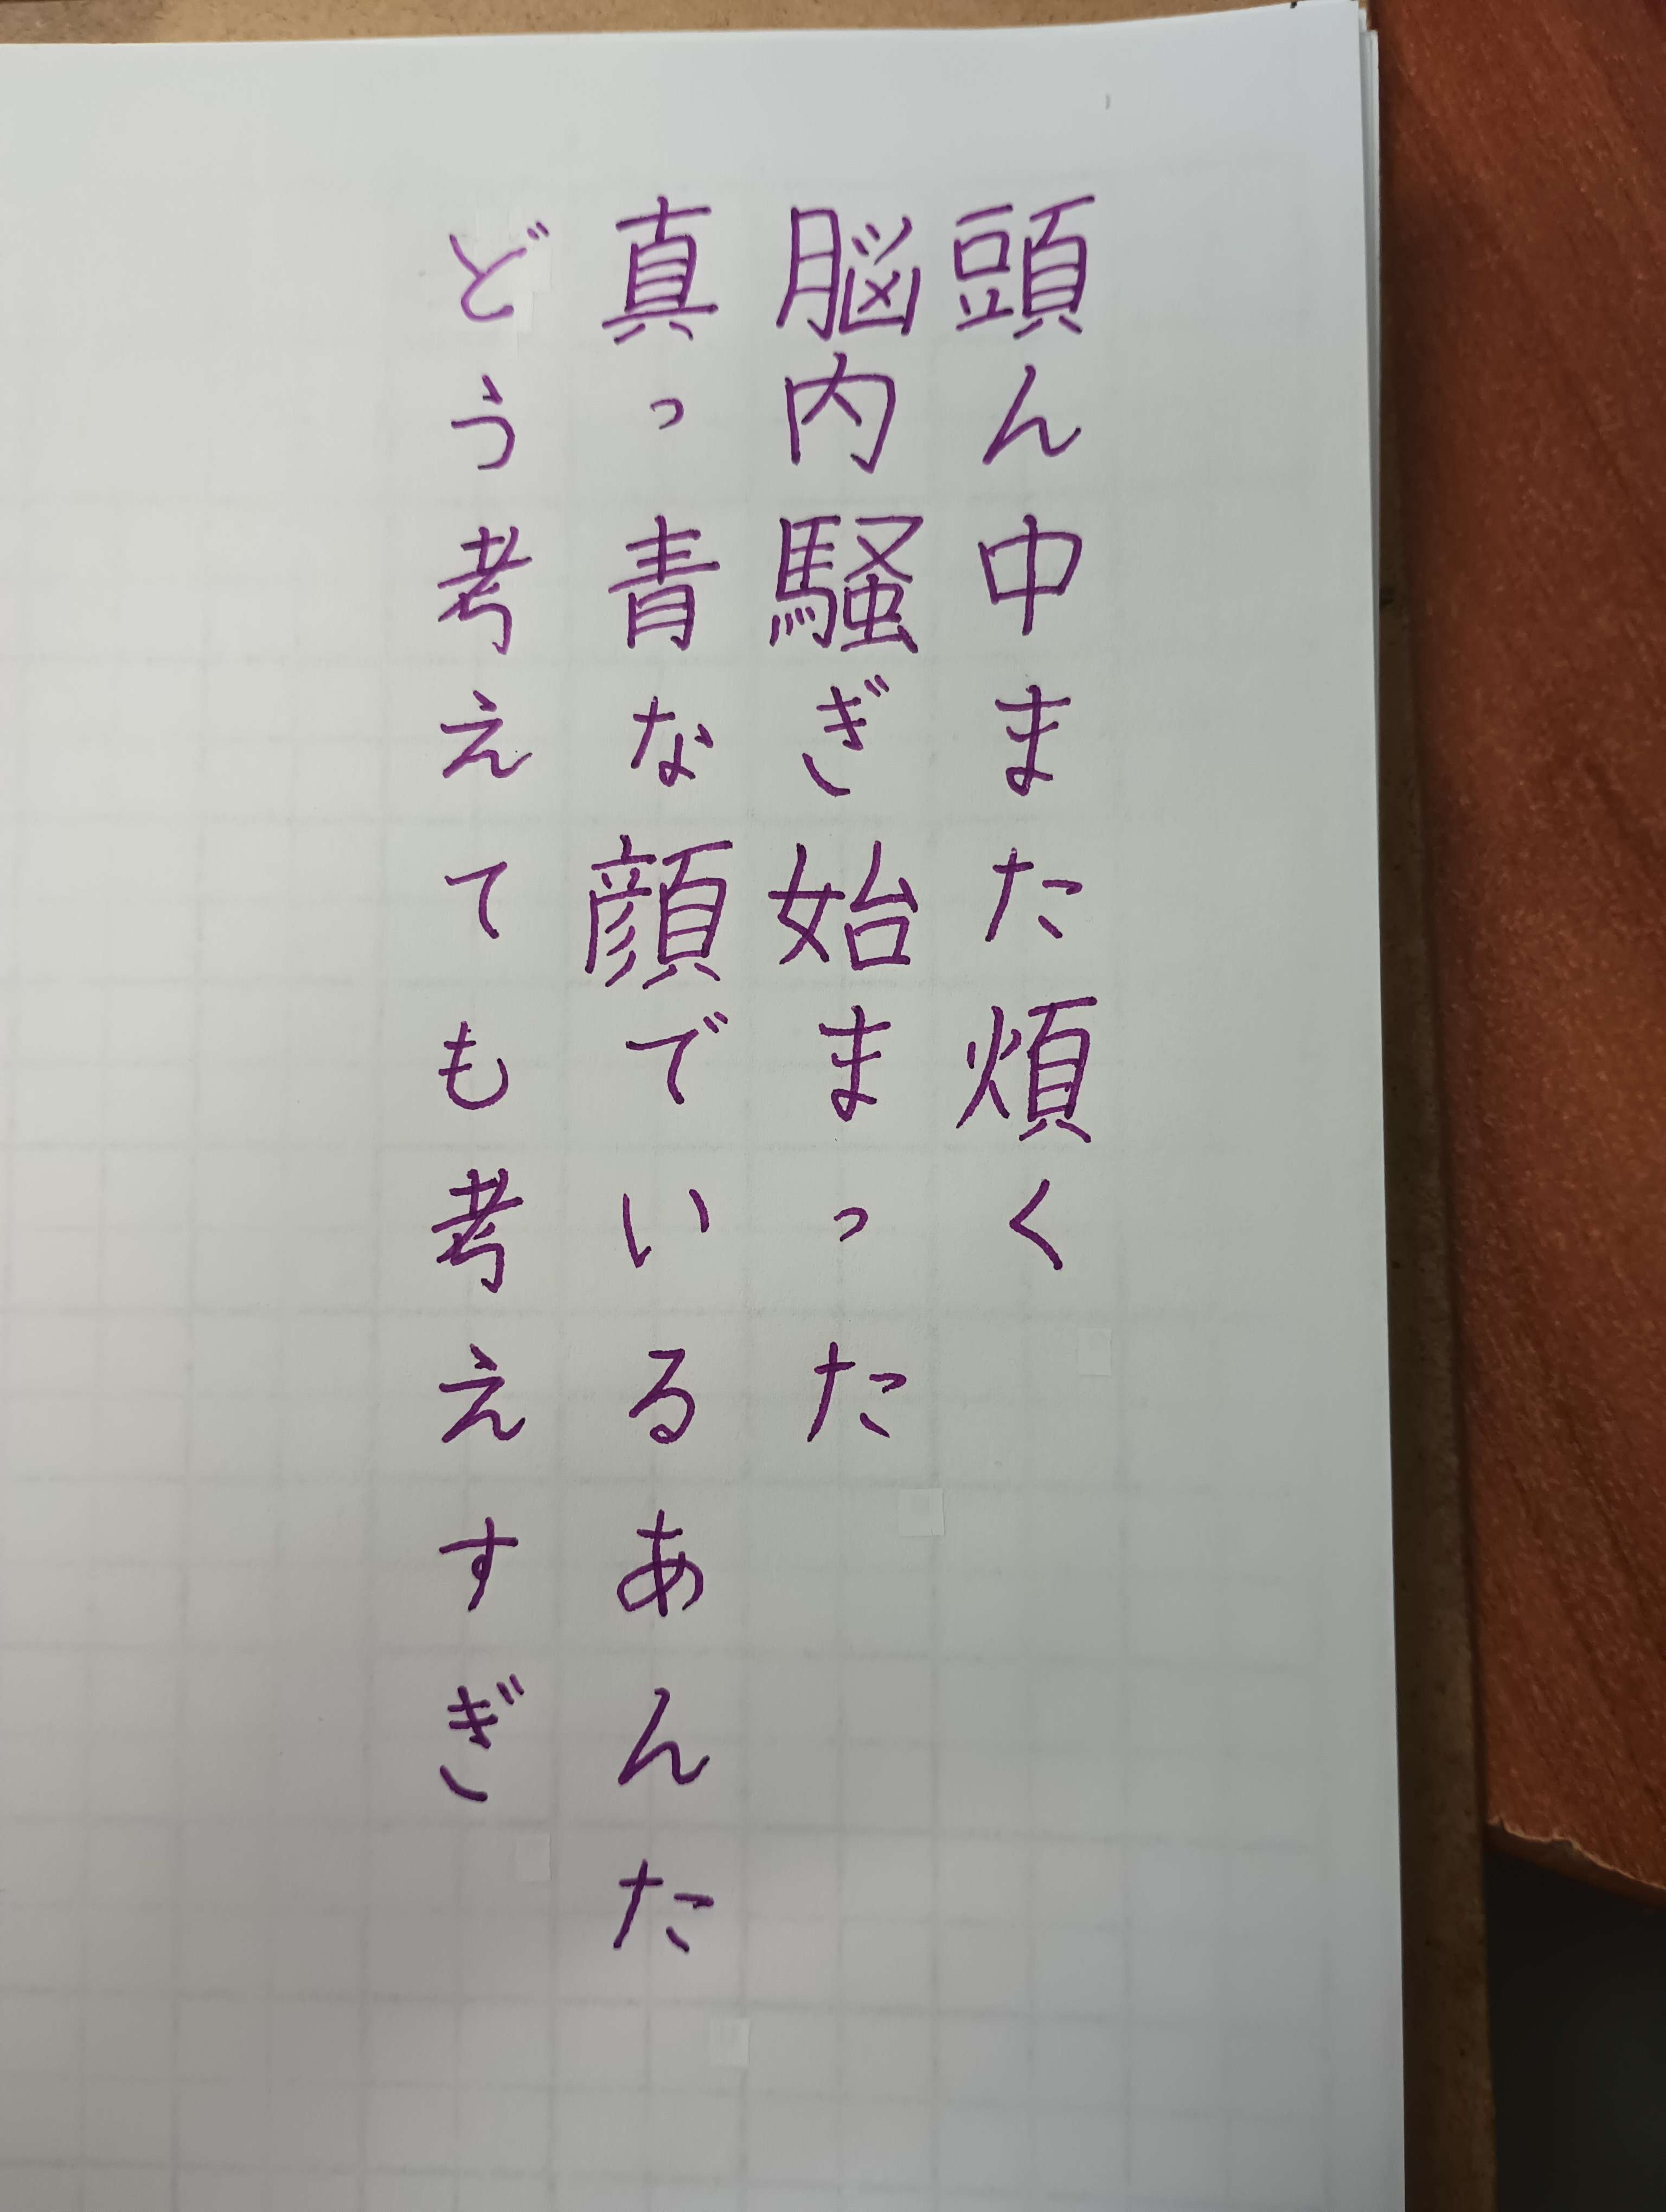 頭ん中また煩く
脳内騒ぎ始まった
真っ青な顔でいるあんた
どう考えても考えすぎ